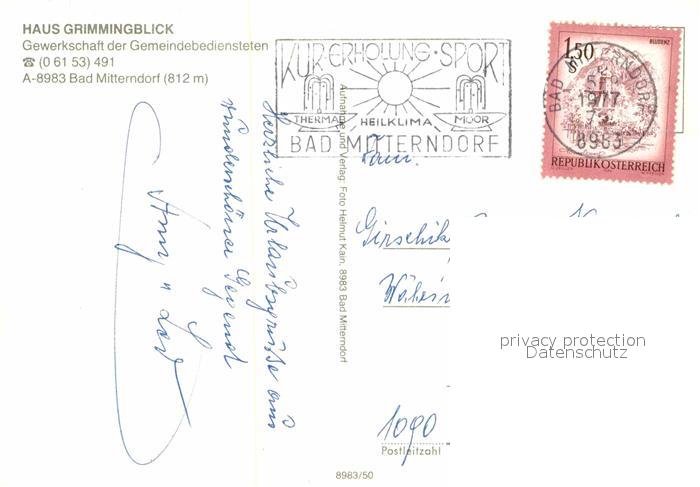 HAUS GRIMMINGBLICK
Gewerkschaft der Gemeindebediensteten
☎ (0 61 53) 491
A-8983 Bad Mitterndorf (812 m)
KUR·ERHOLUNG·SPORT
THERMAL HEILKLIMA MOOR
BAD MITTERNDORF
1.50
BLUDENZ
BAD MITTERNDORF
1977
8983
REPUBLIK ÖSTERREICH
Herzliche Urlaubsgrüße aus
wunderschöner Gegend
Aufnahme und Verlag: Foto Helmut Kain, 8983 Bad Mitterndorf
Fam.
Girschik
1090
Postleitzahl
8983/50
privacy protection
Datenschutz